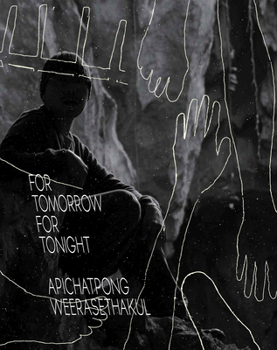 FOR
TOMORROW
FOR
TONIGHT
APICHATPONG
WEERASETHAKUL